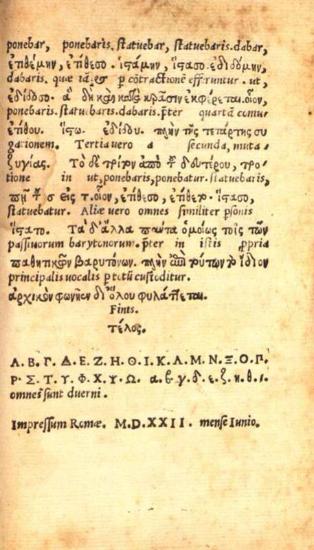 ponebar, ponebaris. statuebar, statuebaris. dabar,
ἐτιθέμην, ἐτίθεσο. ἱστάμην, ἵστασο. ἐδιδόμην,
dabaris. quæ p cõtractionẽ efferuntur. ut,
ἐδίδοσο. ἃ δὴ καὶ κατὰ κρᾶσιν ἐκφέρεται. οἷον,
ponebaris. statuebaris. dabaris. ꝑter quartã coniu
ἐτίθου. ἵστω. ἐδίδου. πλὴν τῆς τετάρτης συ
gationem. Tertia uero a secunda, muta
ζυγίας. Τὸ δὲ τρίτον ἀπὸ τοῦ δευτέρου, τρο
tione in ut, ponebaris, ponebatur. statuebaris,
πῇ τοῦ σ εἰς τ. οἷον, ἐτίθεσο, ἐτίθετο. ἵστασο,
statuebatur. Aliæ uero omnes similiter ꝑsonis
ἵστατο. Τὰ δ' ἄλλα πάντα ὁμοίως τοῖς τῶν
passiuorum barytonorum. ꝑter in istis ꝓpria
παθητικῶν βαρυτόνων. πλὴν ἐπὶ τούτων τὸ ἴδιον
principalis uocalis ꝑ totũ custoditur.
ἀρχικὸν φωνῆεν δι' ὅλου φυλάττεται.
Finis.
Τέλος.
Α. Β. Γ. Δ. Ε. Ζ. Η. Θ. Ι. Κ. Λ. Μ. Ν. Ξ. Ο. Π.
Ρ. Σ. Τ. Υ. Φ. Χ. Υ. Ω. α. β. γ. δ. ε. ζ. η. θ. ι.
omnes sunt duerni.
Impressum Romæ. M.D.XXII. mense Iunio.